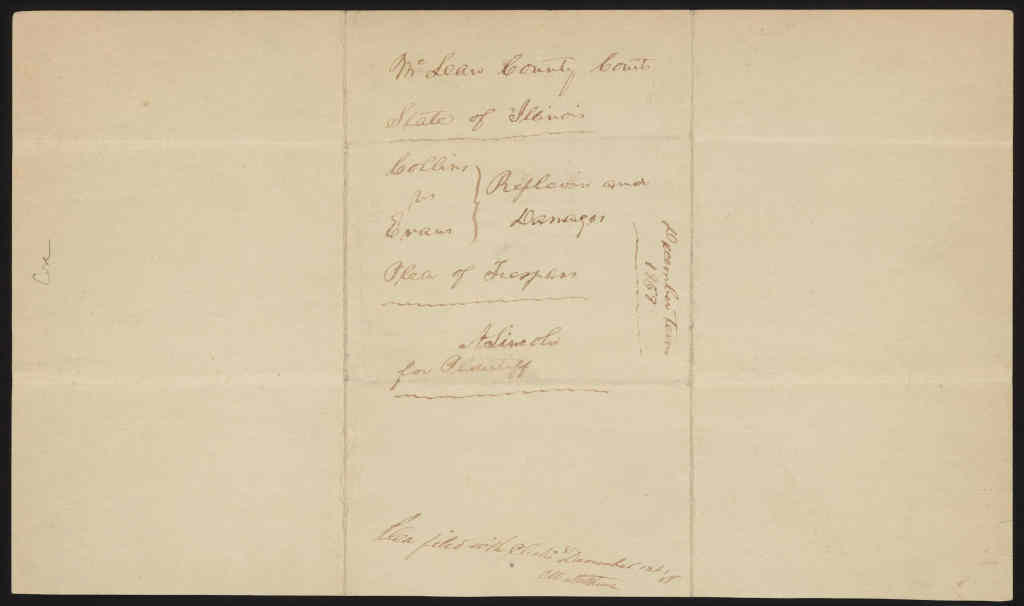 Mc Lean County Court
State of Illinois
Collins
vs
Evans
Replevin and
Damages
Plea of Trespass
A Lincoln
for Plaintiff
December term
1857
Plea filed with Clerk December
Cose